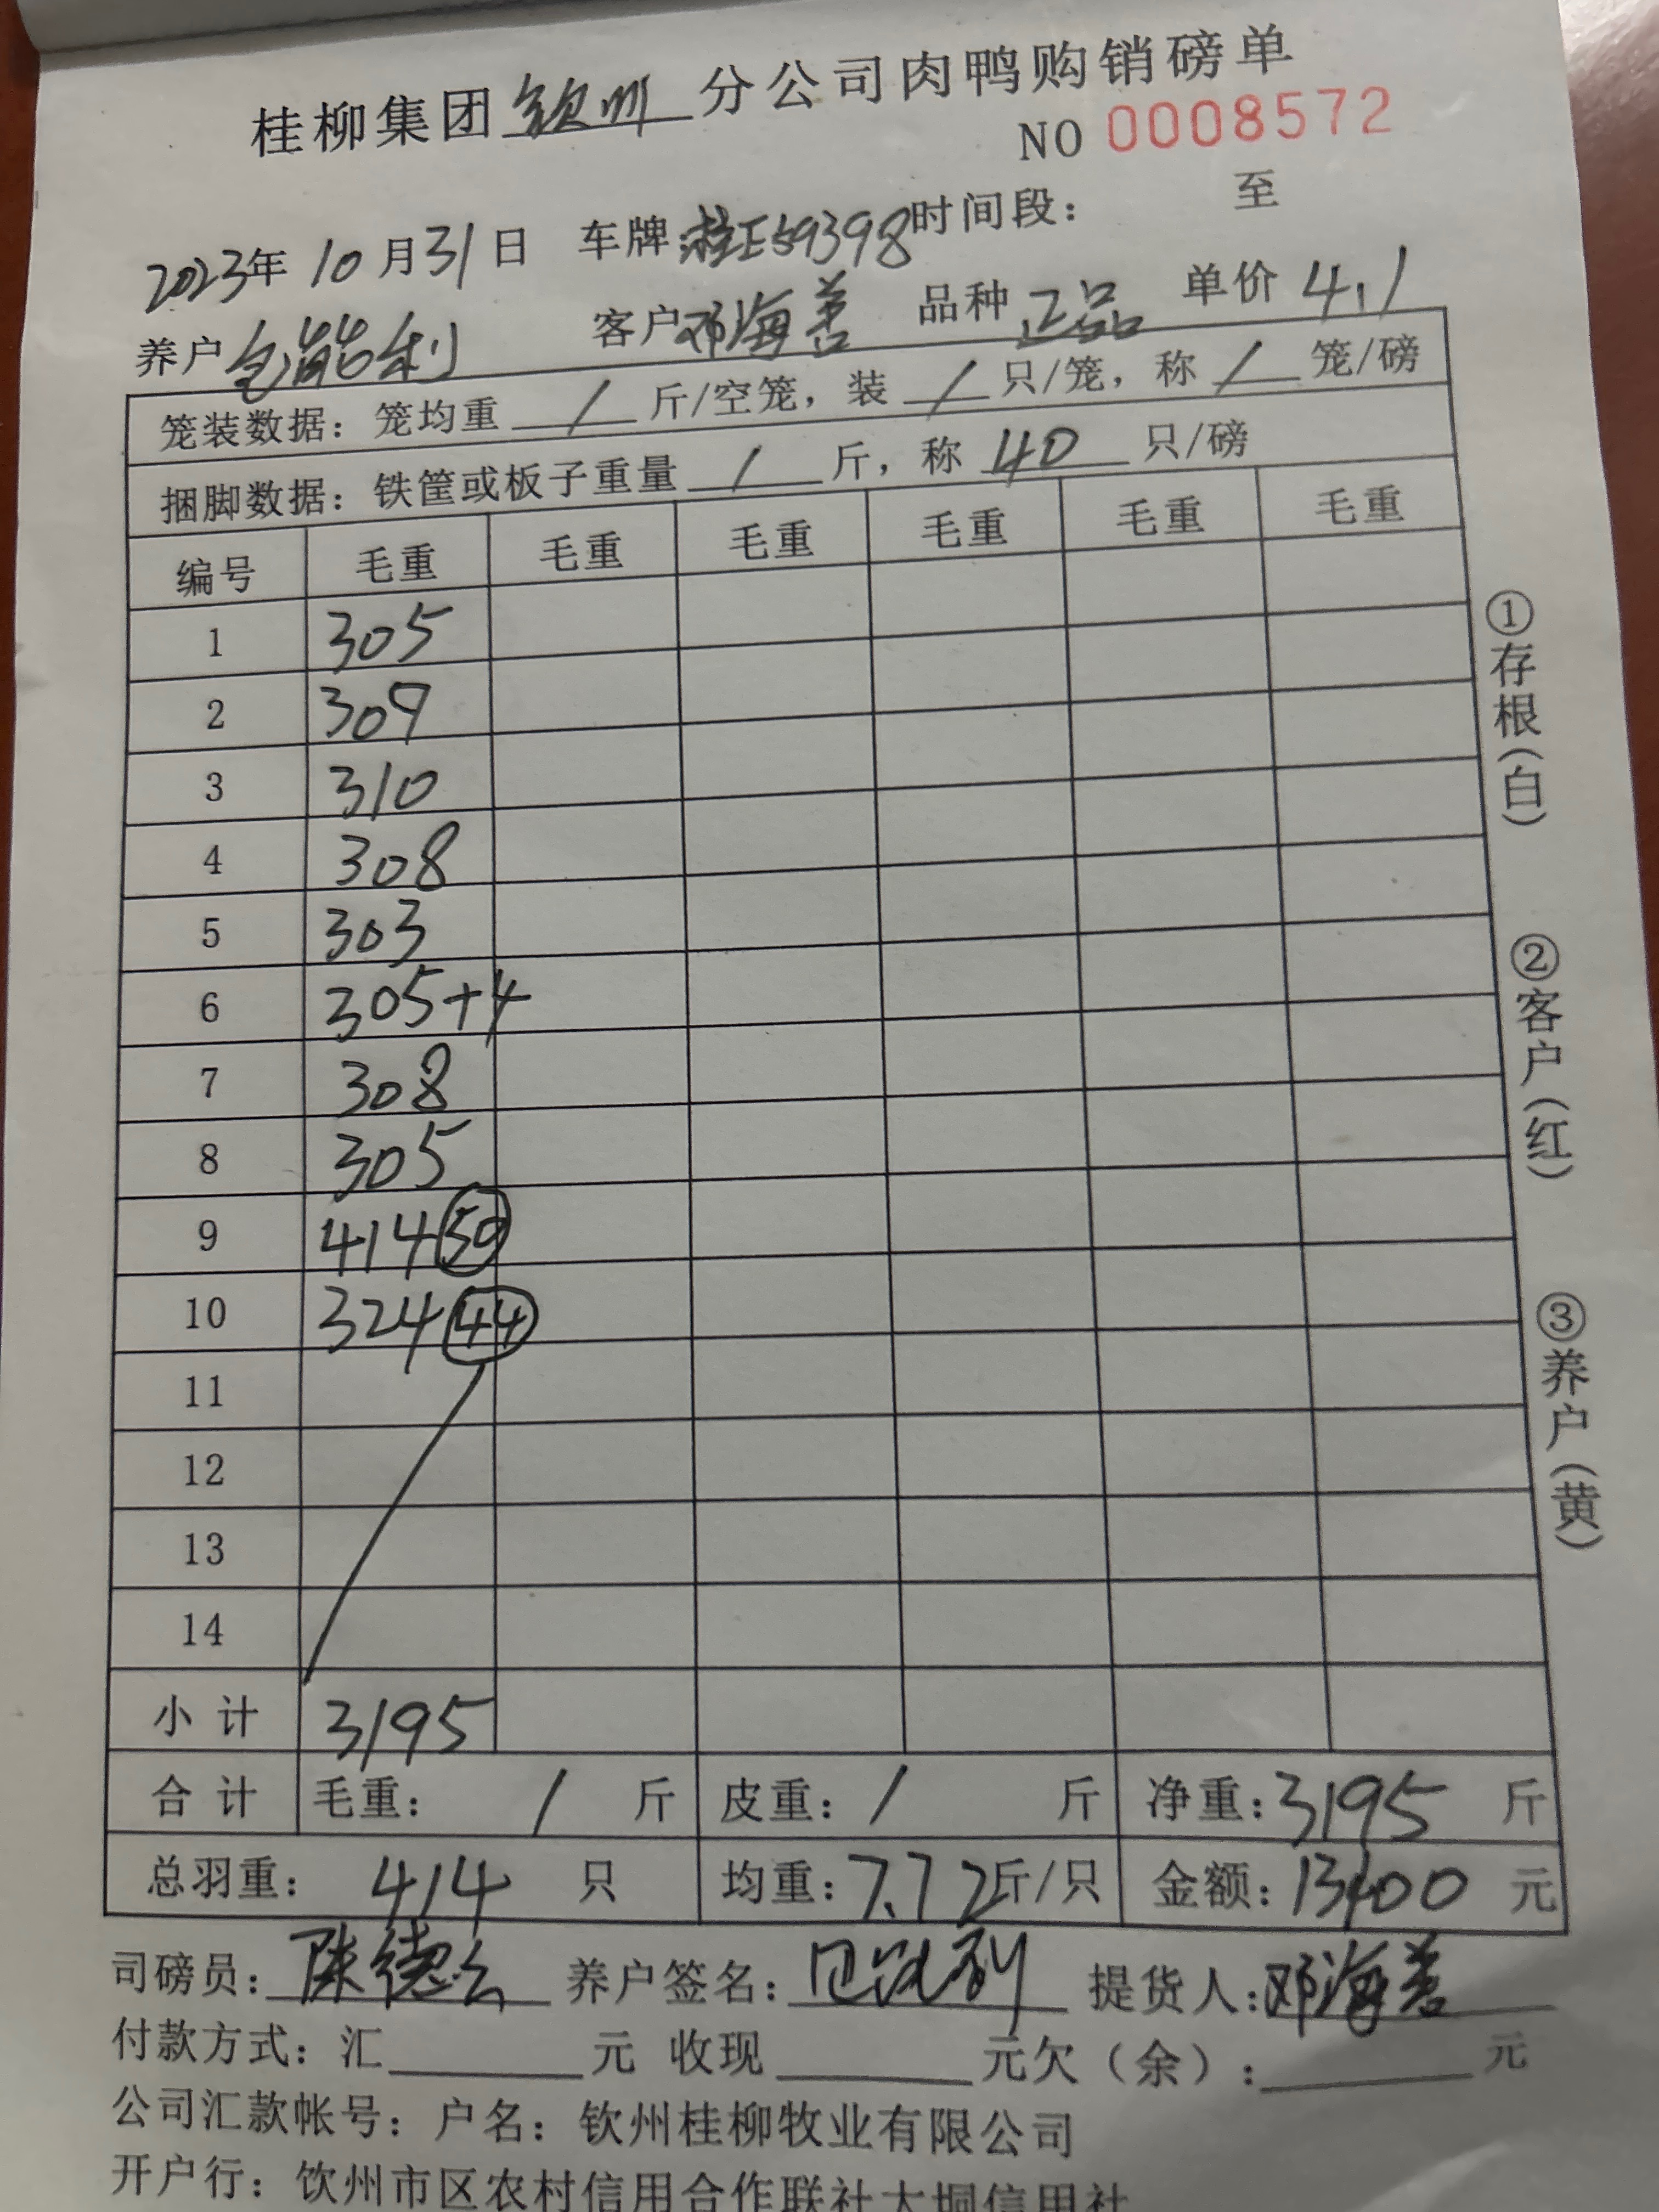 桂柳集团钦州分公司肉鸭购销磅单
NO 0008572
2023年 10 月 31 日 车牌:桂E59398 时间段: 至
养户 能利 客户 邓海善 品种 正品 单价 4.1
笼装数据: 笼均重 / 斤/空笼, 装 / 只/笼, 称 / 笼/磅
捆脚数据: 铁筐或板子重量 / 斤, 称 40 只/磅
编号 毛重 毛重 毛重 毛重 毛重 毛重
1 305
2 309
3 310
4 308
5 303
6 305+4
7 308
8 305
9 414 50
10 324 44
11
12
13
14
小计 3195
合计 毛重: / 斤 皮重: / 斤 净重: 3195 斤
总羽重: 414 只 均重: 7.72 斤/只 金额: 13100 元
司磅员: 陈德云 养户签名: 利 提货人: 邓海善
付款方式: 汇 元 收现 元欠(余): 元
公司汇款帐号: 户名: 钦州桂柳牧业有限公司
开户行: 钦州市区农村信用合作联社大垌信用社
①存根(白)
②客户(红)
③养户(黄)